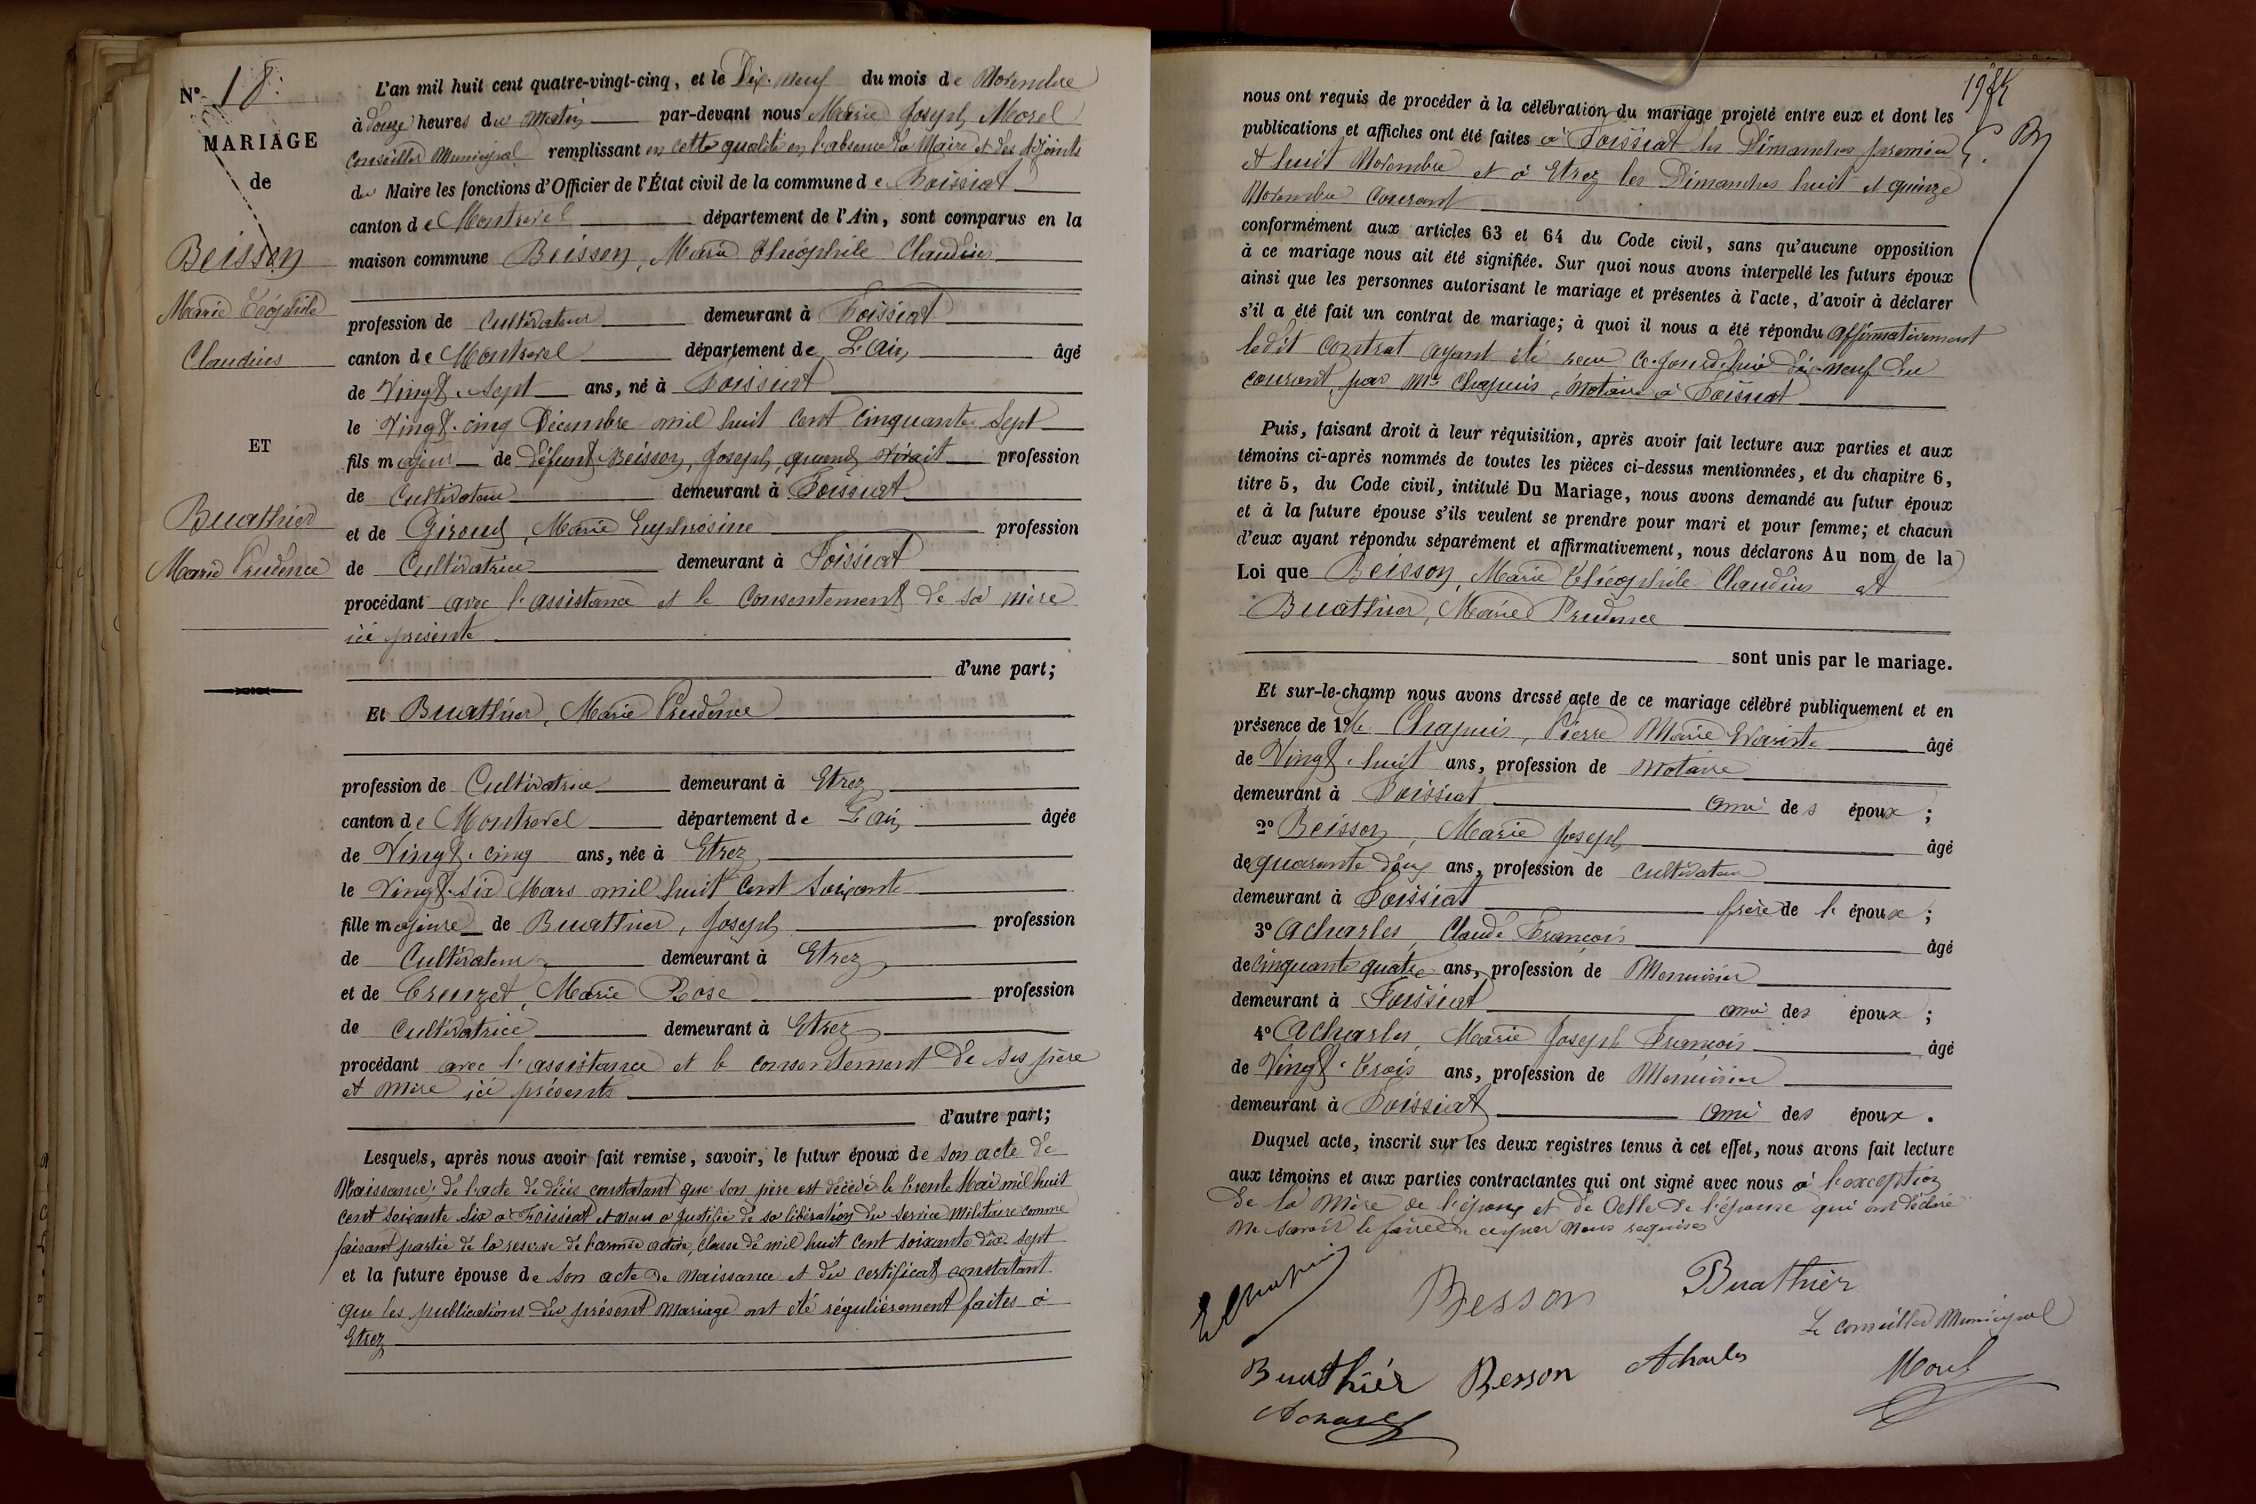 N° 18.
MARIAGE
de
Beisson
Marie Théophile
Claudius
ET
Buathier
Marie Prudence
L'an mil huit cent quatre-vingt-cinq, et le Dix-neuf du mois de Novembre
à Douze heures du matin par-devant nous Marie Joseph Morel
Conseiller Municipal remplissant en cette qualité en l'absence du Maire et des Adjoints
du Maire les fonctions d'Officier de l'État civil de la commune de Foissiat
canton de Montrevel département de l'Ain, sont comparus en la
maison commune Beisson, Marie Théophile Claudius
profession de Cultivateur demeurant à Foissiat
canton de Montrevel département de L'Ain âgé
de Vingt-Sept ans, né à Foissiat
le Vingt-cinq Décembre mil huit cent cinquante-Sept
fils majeur de défunt Beisson, Joseph, quand vivait profession
de Cultivateur demeurant à Foissiat
et de Giroud, Marie Euphrosine profession
de Cultivatrice demeurant à Foissiat
procédant avec l'assistance et le Consentement de sa mère
ici présente
d'une part;
Et Buathier, Marie Prudence
profession de Cultivatrice demeurant à Etrez
canton de Montrevel département de L'Ain âgée
de Vingt-cinq ans, née à Etrez
le Vingt-Six Mars mil huit Cent Soixante
fille majeure de Buathier, Joseph profession
de Cultivateur demeurant à Etrez
et de Creuzet, Marie Rose profession
de Cultivatrice demeurant à Etrez
procédant avec l'assistance et le consentement de ses père
et mère ici présents
d'autre part;
Lesquels, après nous avoir fait remise, savoir, le futur époux de son acte de
Naissance, de l'acte de décès constatant que son père est décédé le trente Mai mil huit
cent soixante dix à Foissiat et nous a justifié de sa libération du service militaire comme
faisant partie de la réserve de l'armée active, classe de mil huit cent soixante dix-sept
et la future épouse de son acte de Naissance et du certificat constatant
que les publications du présent Mariage ont été régulièrement faites à
Etrez
nous ont requis de procéder à la célébration du mariage projeté entre eux et dont les
publications et affiches ont été faites à Foissiat les Dimanches premier
et huit Novembre et à Etrez les Dimanches huit et quinze
Novembre courant
conformément aux articles 63 et 64 du Code civil, sans qu'aucune opposition
à ce mariage nous ait été signifiée. Sur quoi nous avons interpellé les futurs époux
ainsi que les personnes autorisant le mariage et présentes à l'acte, d'avoir à déclarer
s'il a été fait un contrat de mariage; à quoi il nous a été répondu affirmativement
ledit contrat ayant été reçu ce-jourd'hui dix-neuf du
courant par Me Chapuis, Notaire à Foissiat
Puis, faisant droit à leur réquisition, après avoir fait lecture aux parties et aux
témoins ci-après nommés de toutes les pièces ci-dessus mentionnées, et du chapitre 6,
titre 5, du Code civil, intitulé Du Mariage, nous avons demandé au futur époux
et à la future épouse s'ils veulent se prendre pour mari et pour femme; et chacun
d'eux ayant répondu séparément et affirmativement, nous déclarons Au nom de la
Loi que Beisson, Marie Théophile Claudius et
Buathier, Marie Prudence
sont unis par le mariage.
Et sur-le-champ nous avons dressé acte de ce mariage célébré publiquement et en
présence de 1° Me Chapuis, Pierre Marie Evariste âgé
de Vingt-huit ans, profession de Notaire
demeurant à Foissiat ami des époux;
2° Beisson, Marie Joseph âgé
de quarante deux ans, profession de cultivateur
demeurant à Foissiat frère de l'époux;
3° Acharles, Claude François âgé
de cinquante quatre ans, profession de Menuisier
demeurant à Foissiat ami des époux;
4° Acharles, Marie Joseph François âgé
de Vingt-trois ans, profession de Menuisier
demeurant à Foissiat ami des époux.
Duquel acte, inscrit sur les deux registres tenus à cet effet, nous avons fait lecture
aux témoins et aux parties contractantes qui ont signé avec nous à l'exception
de la Mère de l'époux et de Celle de l'épouse qui ont déclaré
ne savoir le faire de ce par Nous requises
Besson
Buathier
Le conseiller Municipal
Buathier Besson Acharles Morel